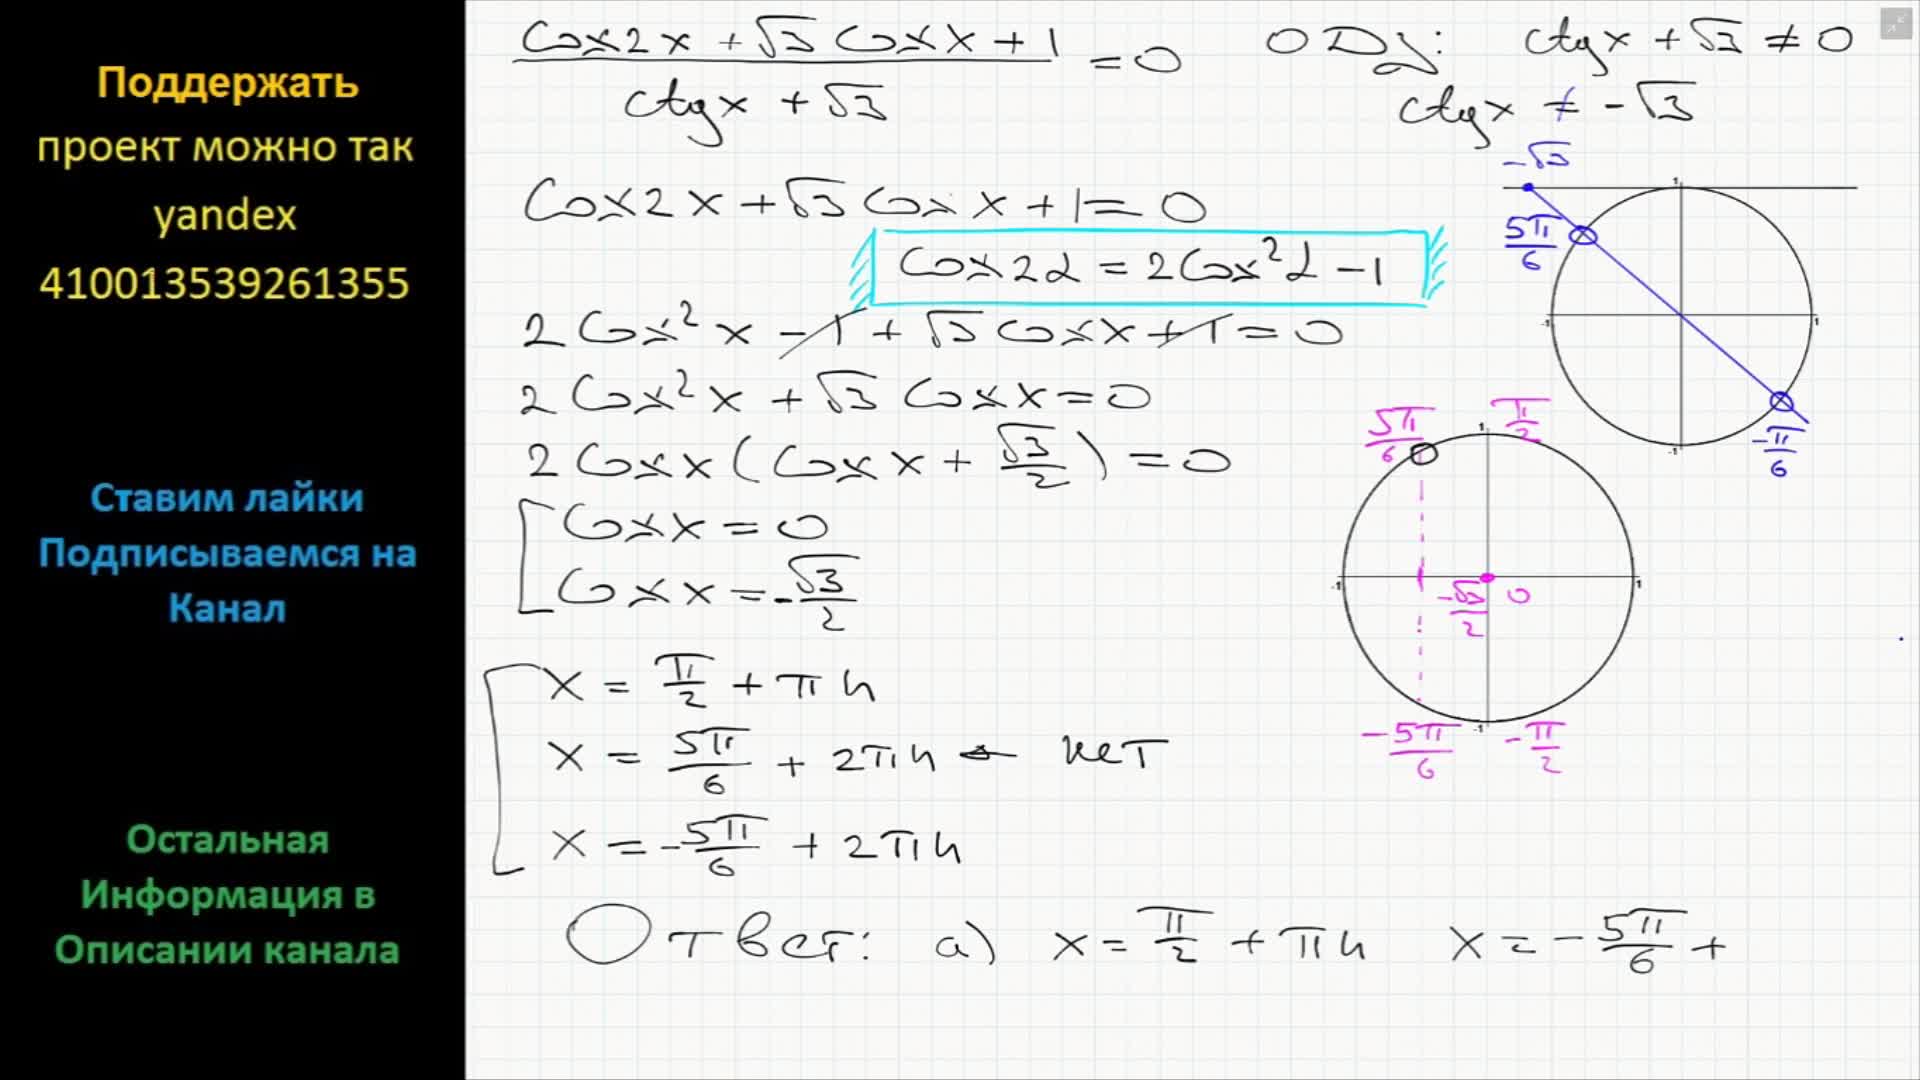 Поддержать
проект можно так
yandex
410013539261355
Ставим лайки
Подписываемся на
Канал
Остальная
Информация в
Описании канала
(Cos2x + √3 Cosx + 1) / (ctgx + √3) = 0
ОДЗ: ctgx + √3 ≠ 0
ctgx ≠ -√3
Cos2x + √3 Cosx + 1 = 0
Cos2α = 2Cos²α - 1
2Cos²x - 1 + √3 Cosx + 1 = 0
2Cos²x + √3 Cosx = 0
2Cosx (Cosx + √3/2) = 0
Cosx = 0
Cosx = -√3/2
x = π/2 + πn
x = 5π/6 + 2πn ← нет
x = -5π/6 + 2πn
Ответ: а) x = π/2 + πn x = -5π/6 +
-√3
1
5π/6
-1
1
-1
-π/6
5π/6
π/2
1
-1
1
-√3/2
0
-5π/6
-1
-π/2